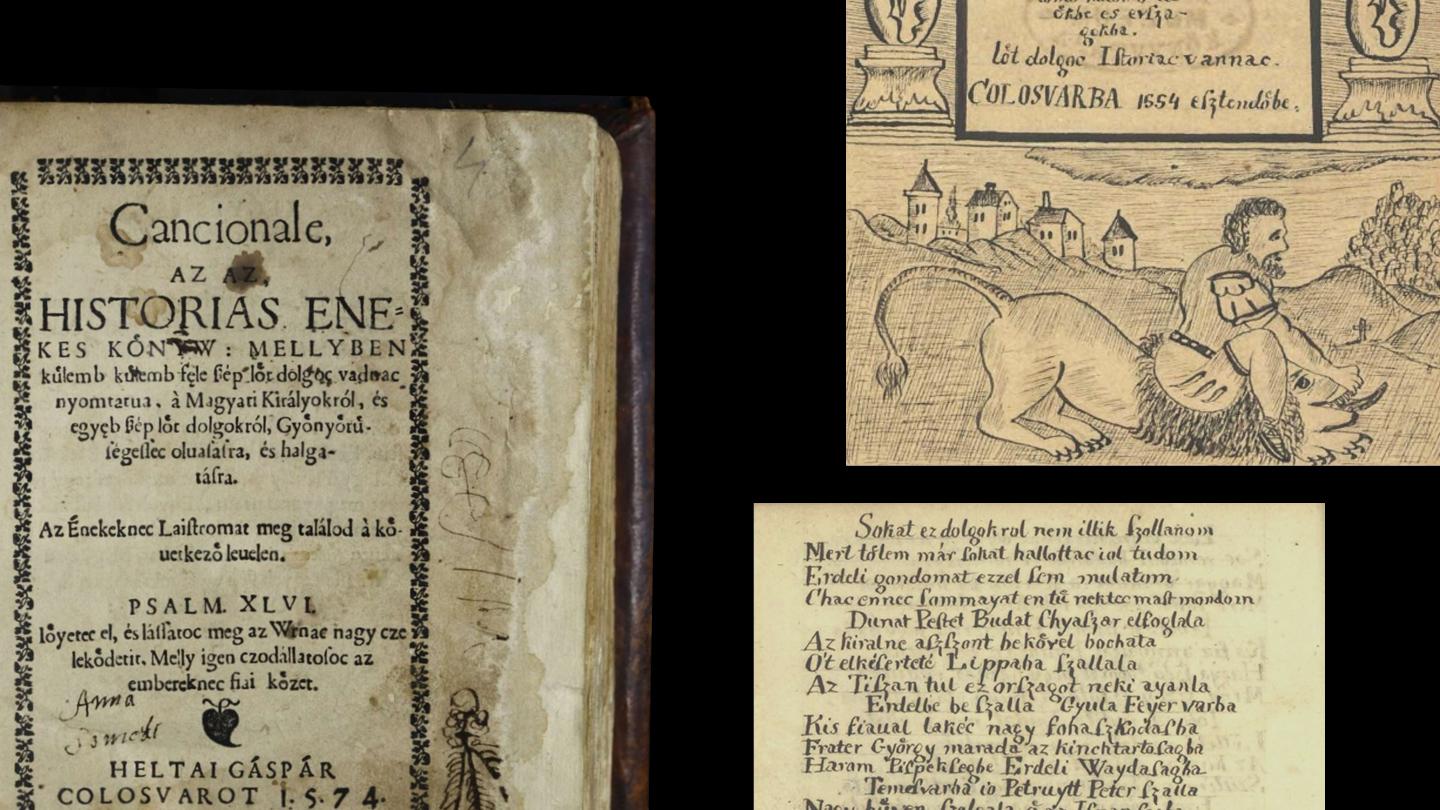 Cancionale,
AZ AZ,
HISTORIAS ENE=
KES KŐNYW: MELLYBEN
kúlemb kúlemb fęle ßép lȏt dolgoc vadnac
nyomtatua, à Magyari Királyokról, és
egyęb ßép lȏt dolgokról, Gyȏnyȏrú-
ſégeſſec oluaſaſra, és halga-
táſra.
Az Énekeknec Laiſtromat meg találod à kȏ-
uetkezȏ leuelen.
PSALM. XLVI.
Iȏyetec el, és láſſatoc meg az Wrnac nagy cze
lekȏdetit. Melly igen czodállatoſoc az
embereknec fiai kȏzȏt.
Anna
HELTAI GÁSPÁR
COLOSVAROT 1.5.74.
ȏkbe es erſza-
gokba.
lȏt dolgoc Iſtoriac vannac.
COLOSVARBA 1554 eſztendȏbe.
Sokat ez dolgokrol nem illik ſzollanom
Mert tȏlem már ſokat hallottac iol tudom
Erdeli gondomat ezzel ſem mulatom
Chac ennec ſommayat en tú nektec maſt mondom
Dunat Peſtet Budat Chyaſzar elfoglala
Az kiralne aſzſzont bekȏvel bochata
Ȏt elkiſerteté Lippaba ſzallala
Az Tiſzan tul ez orſzagot neki ayanla
Erdelbe be ſzalla Gyula Feyer varba
Kis fiaual lakéc nagy fohaſzkodaſba
Frater Gyȏrgy marada az kinchtartoſagba
Haram Piſpekſegbe Erdeli Waydaſagba
Temeſvarba io Petruytt Peter ſzalla